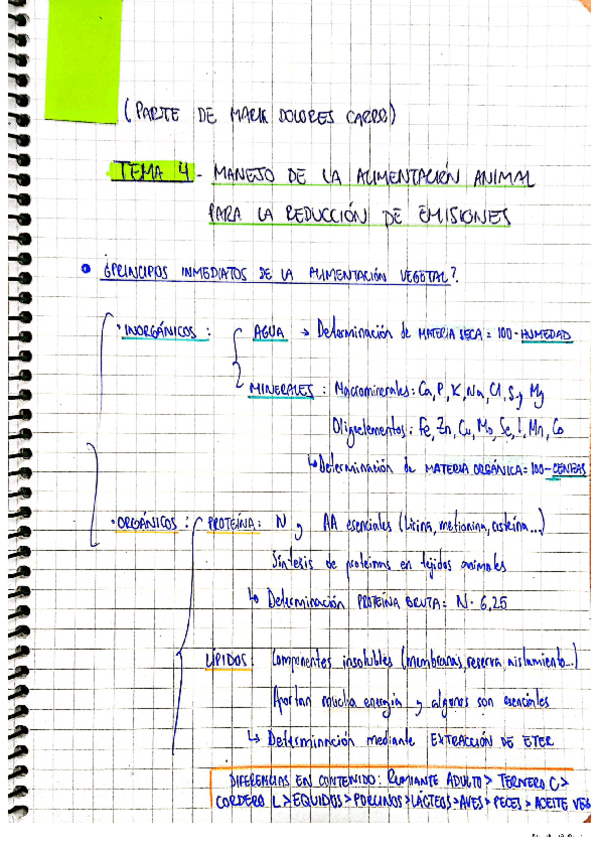 (PARTE DE MARIA DOLORES CARRO)
TEMA 4 - MANEJO DE LA ALIMENTACIÓN ANIMAL
PARA LA REDUCCIÓN DE EMISIONES
¿PRINCIPIOS INMEDIATOS DE LA ALIMENTACIÓN VEGETAL?
· INORGÁNICOS: AGUA → Determinación de MATERIA SECA = 100 - HUMEDAD
MINERALES: Macrominerales: Ca, P, K, Na, Cl, S y Mg
Oligoelementos: Fe, Zn, Cu, Mo, Se, I, Mn, Co
↳ Determinación de MATERIA ORGÁNICA = 100 - CENIZAS
· ORGÁNICOS: PROTEÍNA: N y AA esenciales (Lisina, metionina, cisteína...)
Síntesis de proteínas en tejidos animales
↳ Determinación PROTEÍNA BRUTA: N · 6,25
LÍPIDOS: Componentes insolubles (membranas, reserva, aislamiento...)
Aportan mucha energía y algunos son esenciales
↳ Determinación mediante EXTRACCIÓN DE ETER
DIFERENCIAS EN CONTENIDO: RUMIANTE ADULTO > TERNERO C >
CORDERO L > EQUIDOS > PORCINOS > LÁCTEOS > AVES > PECES > ACEITE VEG